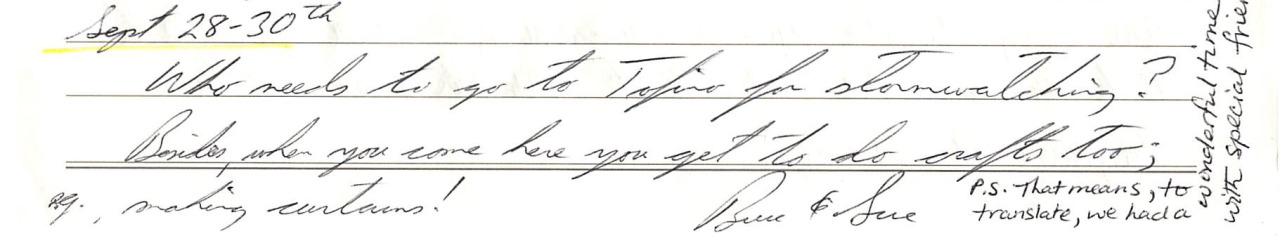 Sept 28-30th
Who needs to go to Tofino for stormwatching?
Besides, when you come here you get to do crafts too;
e.g., making curtains!
& Sue
P.S. That means, to
translate, we had a
wonderful time
with special